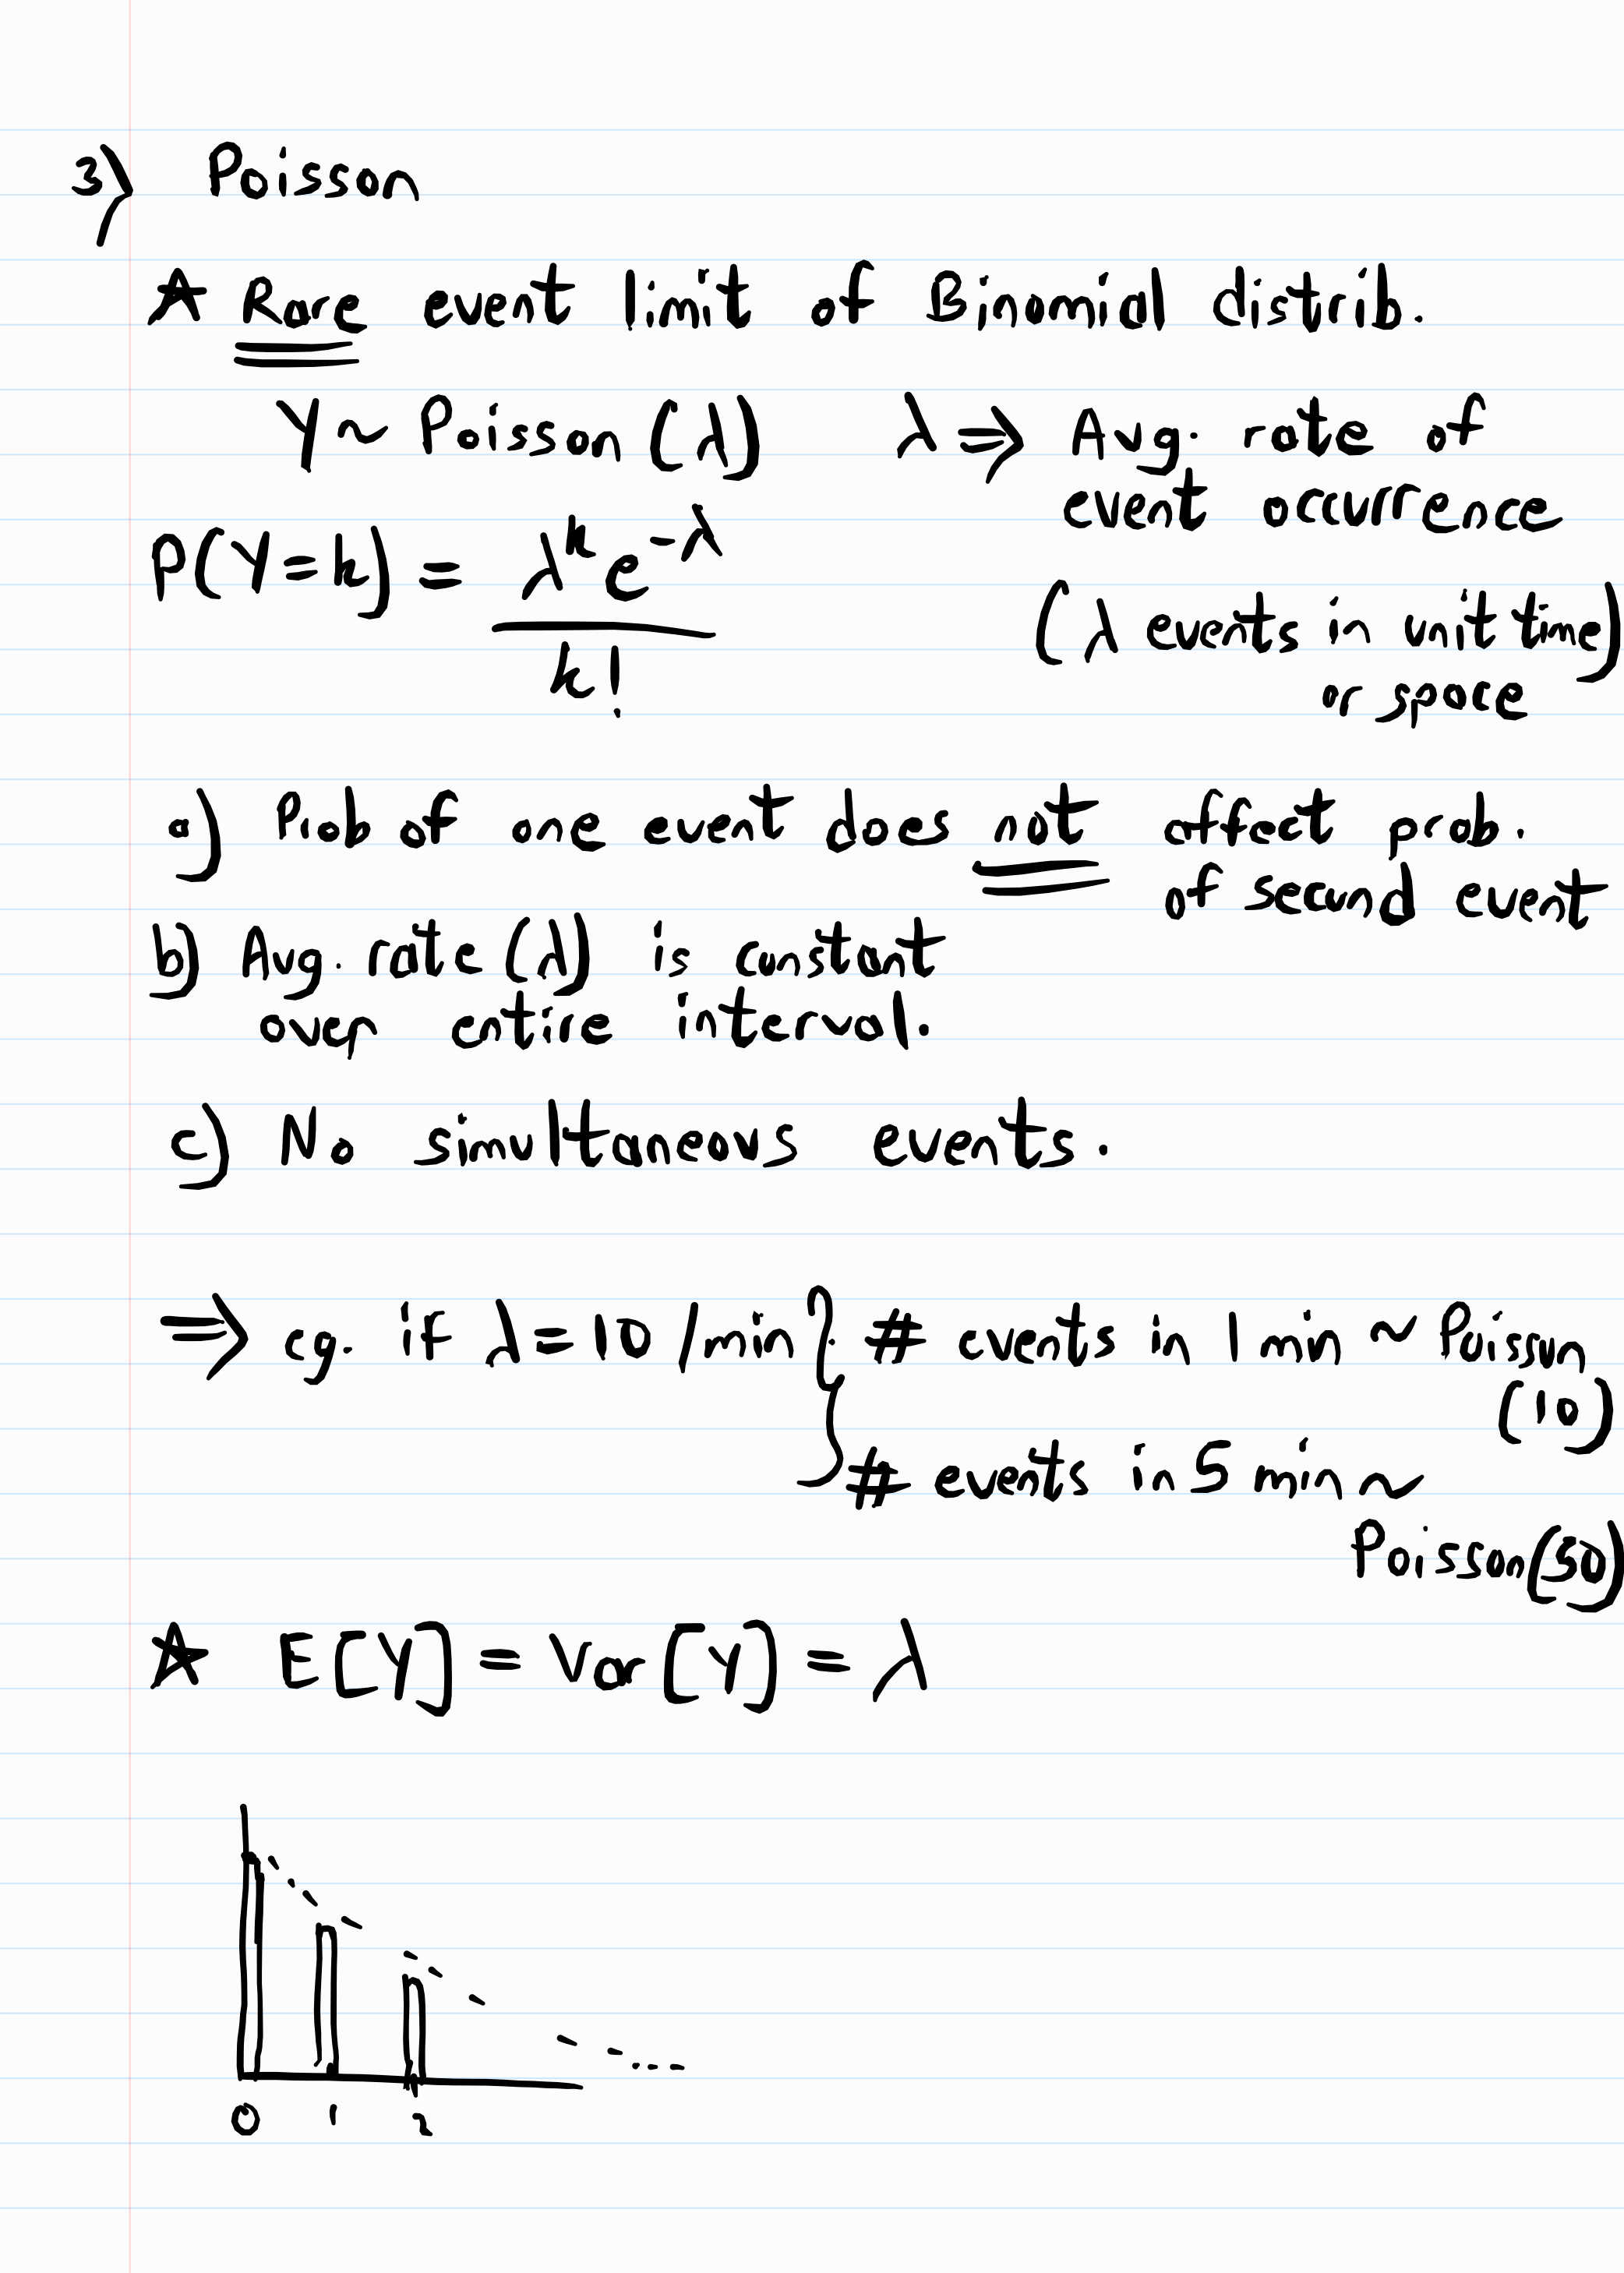 3) Poisson
★ Rare event limit of Binomial distrib.
Y ~ Poisson (λ) λ ⇒ Avg. rate of
event occurrence
P(Y=k) = λ^k e^-λ / k!
(λ events in unit time)
or space
a) Prob of one event does not affect prob.
of second event
b) Avg. rate (λ) is constant
over entire interval.
c) No simultaneous events.
⇒ eg. if λ = 10 /min } # events in 1 min ~ Poisson
(10)
# events in 5 min ~
Poisson(50)
★ E[Y] = Var[Y] = λ
0 1 2